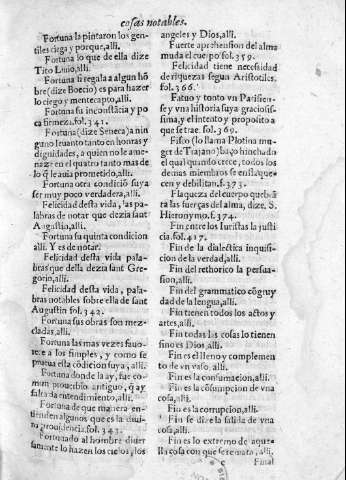 cosas notables.
Fortuna la pintaron los gen-
tiles ciega y porque, alli.
Fortuna lo que de ella dize
Tito Liuio, alli.
Fortuna si regala a algun hõ
bre (dize Boecio) es para hazer
lo ciego y mentecapto, alli.
Fortuna su inconstãcia y po
ca firmeza. fol. 341.
Fortuna (dize Seneca) a nin
guno leuanto tanto en honras y
dignidades, a quien no le ame-
naze en el quatro tanto mas de
lo q̃ le auia prometido, alli.
Fortuna otra condició suya
ser muy poco verdadera, alli.
Felicidad desta vida, las pa-
labras de notar que dezia sant
Augustin, alli.
Fortuna su quinta condicion
alli. Y es de notar.
Felicidad desta vida pala-
bras que della dezia sant Gre-
gorio, alli.
Felicidad desta vida, pala-
bras notables sobre ella de sant
Augustin fol. 342.
Fortuna sus obras son mez-
cladas, alli.
Fortuna las mas vezes fauo-
rece a los simples, y como se
prueua esta cõdicion suya, alli.
Fortuna donde la ay, fue co-
mun prouerbio antiguo, q̃ ay
falta de entendimiento, alli.
Fortuna de que manera en-
tienden algunos que es la diui-
na prouidencia. fol. 343.
Fortunado al hombre
lo hazen los cielos, los
angeles y Dios, alli.
Fuerte aprehension del alma
muda el cuerpo fol. 359.
Felicidad tiene necesidad
de riquezas segun Aristotiles.
fol. 366.
Fatuo y tonto vn Parisien-
se y vna historia suya graciosis-
sima, y el intento y proposito a
que se trae. fol. 369.
Fisco (lo llama Plotina mu-
ger de Trajano) baço hinchado
el qual quando crece, todos los
demas miembros se enflaque-
cen y debilitan. f. 373.
Flaqueza del cuerpo quebrã
ta las fuerças del alma, dize. S.
Hieronymo. f. 374.
Fin entre los Iuristas la justi
cia. fol. 417.
Fin de la dialectica inquisi-
cion de la verdad, alli.
Fin del rethorico la persua-
sion, alli.
Fin del grammatico cõgruy
dad de la lengua, alli.
Fin tienen todos los actos y
artes, alli.
Fin todas las cosas lo tienen
sino es Dios, alli.
Fin es el lleno y complemen
to de vn vaso, alli.
Fin es la consumacion, alli.
Fin es la cõsumpcion de vna
cosa, alli.
Fin es la corrupcion, alli.
Fin se dize la salida de vna
cosa, alli.
Fin es lo extremo de aque-
lla cosa con que se remata, alli.
Final